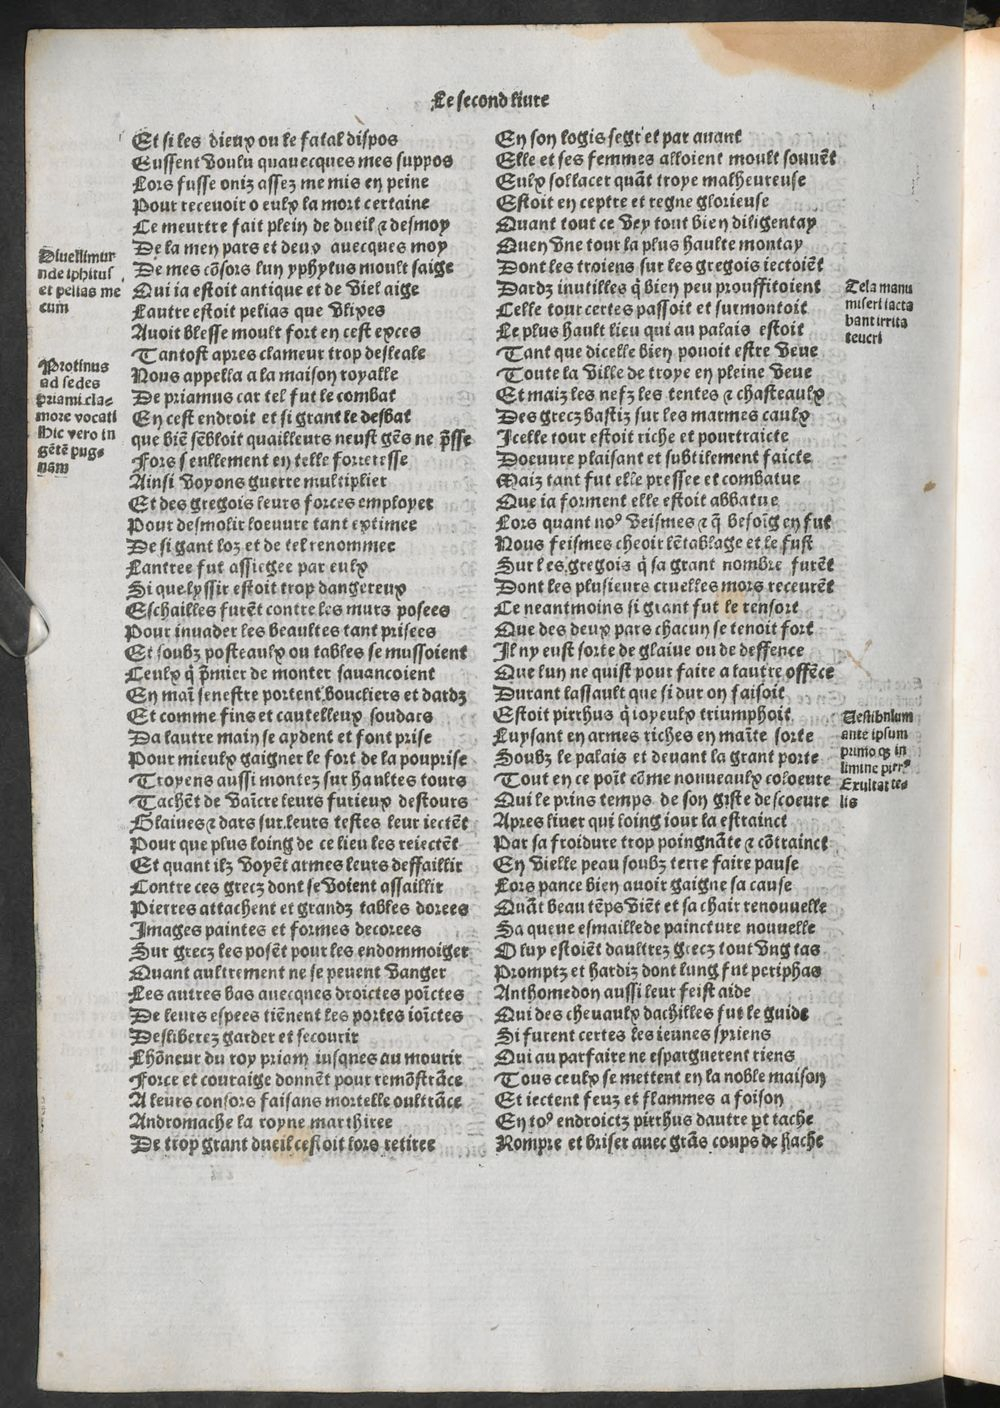 Le second liure
Et si les dieux ou le fatal dispos
Eussent voulu quauecques mes suppos
Lors fusse oniz assez me mis en peine
Pour receuoir o eulx la mort certaine
Ce meurtre fait plein de dueil ⁊ desmoy
De la men pars et deux auecques moy
De mes cõsors lun yphytus moult saige
Qui ia estoit antique et de viel aige
Lautre estoit pelias que vlixes
Auoit blesse moult fort en cest exces
Tantost apres clameur trop desleale
Nous appella a la maison royalle
De priamus car tel fut le combat
En cest endroit et si grant le desbat
que biẽ sẽbloit quailleurs neust gẽs ne p̃sse
Fors seullement en telle forteresse
Ainsi voyons guerre multiplier
Et des gregois leurs forces employer
Pour desmolir loeuure tant extimee
De si gant loz et de tel renommee
Lantree fut assiegee par eulx
Si que lyssir estoit trop dangereux
Eschailles furẽt contre les murs posees
Pour inuader les beaultes tant prisees
Et soubz posteaulx ou tables se mussoient
Ceulx q̃ p̃mier de monter sauancoient
En maĩ senestre portent boucliers et dardz
Et comme fins et cautelleux soudars
Da lautre main se aydent et font prise
Pour mieulx gaigner le fort de la pouprise
Troyens aussi montez sur haultes tours
Tachẽt de vaĩcre leurs furieux destours
Glaiues ⁊ dars sur leurs testes leur iectẽt
Pour que plus loing de ce lieu les reiectẽt
Et quant ilz voyẽt armes leurs deffaillir
Contre ces grecz dont se voient assaillir
Pierres attachent et grandz tables dorees
Images paintes et formes decorees
Sur grecz les posẽt pour les endommoiger
Quant aultrement ne se peuent vanger
Les autres bas auecques droictes poĩctes
De leurs espees tiẽnent les portes ioĩctes
Desliberez garder et secourir
Lhõneur du roy priam iusques au mourir
Force et couraige donnẽt pour remõstrãce
A leurs consors faisans mortelle oultrãce
Andromache la royne marthiree
De trop grant dueil cestoit lors retiree
Diuellimur
nde iphitus
et pelias me
cum
Protinus
ad sedes
priami cla-
more vocati
Hic vero in
gẽtẽ pug-
nam
En son logis segret par auant
Elle et ses femmes alloient moult souuẽt
Eulx sollacer quãt troye malheureuse
Estoit en ceptre et regne glorieuse
Quant tout ce vey tout bien diligentay
Quen vne tour la plus haulte montay
Dont les troiens sur les gregois iectoiẽt
Dardz inutilles q̃ bien peu prouffitoient
Celle tour certes passoit et surmontoit
Le plus hault lieu qui au palais estoit
Tant que dicelle bien pouoit estre veue
Toute la ville de troye en pleine veue
Et maiz les nefz les tentes ⁊ chasteaulx
Des grecz bastiz sur les marmes caulx
Icelle tour estoit riche et pourtraicte
Doeuure plaisant et subtilement faicte
Maiz tant fut elle pressee et combatue
Que ia forment elle estoit abbatue
Lors quant noꝰ veismes ⁊ q̃ besoĩg en fut
Nous feismes cheoir lẽtablage et le fust
Sur les gregois q̃ sa grant nombre furẽt
Dont les plusieurs cruelles mors receurẽt
Ce neantmoins si grant fut le rensort
Que des deux pars chacun se tenoit fort
Il ny eust sorte de glaiue ou de deffence
Que lun ne quist pour faire a lautre offẽce
Durant lassault que si dur on faisoit
Estoit pirrhus q̃ ioyeulx triumphoit
Luysant en armes riches en maĩte sorte
Soubz le palais et deuant la grant porte
Tout en ce poĩt cõme nouueaulx coloeure
Qui le prins temps de son giste descoeure
Apres liuer qui loing iour la estrainct
Par sa froidure trop poingnãte ⁊ cõtrainct
En vielle peau soubz terre faire pause
Lors pance bien auoir gaigne sa cause
Quãt beau tẽps viẽt et sa chair renouuelle
Sa queue esmaillede paincture nouuelle
O luy estoiẽt daultrez grecz tout vng tas
Promptz et hardiz dont lung fut periphas
Anthomedon aussi leur feist aide
Qui des cheuaulx dachilles fut le guide
Si furent certes les ieunes syriens
Qui au parfaire ne esparguerent riens
Tous ceulx se mettent en la noble maison
Et iectent feuz et flammes a foison
En toꝰ endroictz pirrhus dautre p̱t tache
Rompre et briser auec grãs coups de hache
Tela manu
miseri iacta
bant irrita
teucri
Uestibulum
ante ipsum
primo qʒ in
limine pirrꝰ
Exultat te-
lis